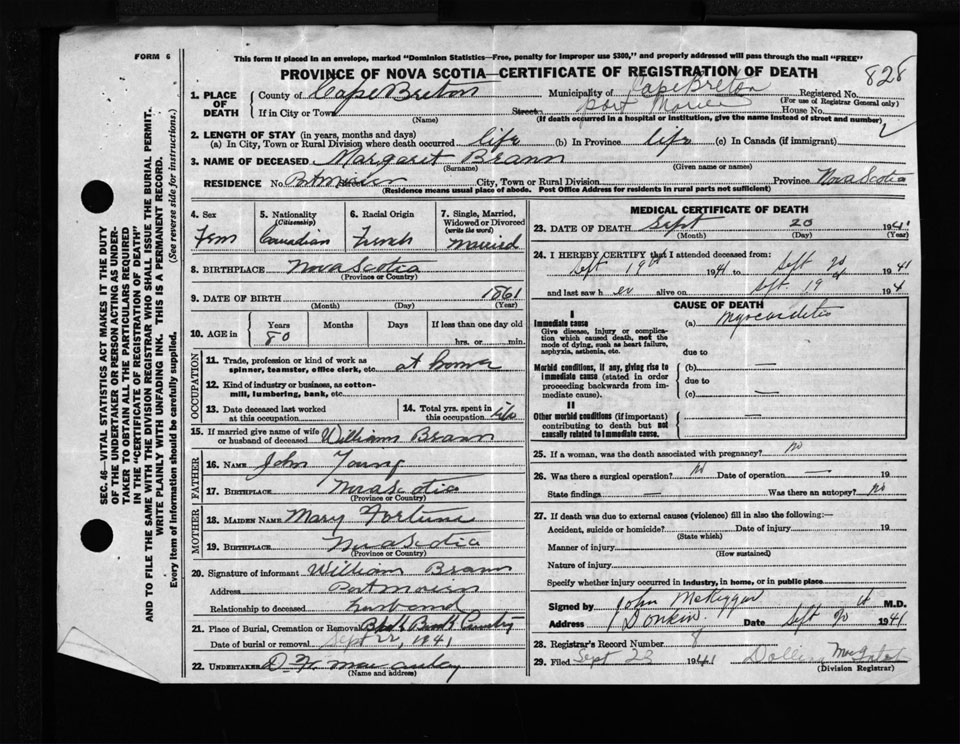 FORM 6
This form if placed in an envelope, marked "Dominion Statistics—Free, penalty for improper use $300," and properly addressed will pass through the mail "FREE"
PROVINCE OF NOVA SCOTIA—CERTIFICATE OF REGISTRATION OF DEATH
828
1. PLACE OF DEATH
County of Cape Breton Municipality of Cape Breton Registered No.
(For use of Registrar General only)
If in City or Town Street Port Morien House No.
(Name) (If death occurred in a hospital or institution, give the name instead of street and number)
2. LENGTH OF STAY (in years, months and days)
(a) In City, Town or Rural Division where death occurred life (b) In Province life (c) In Canada (if immigrant)
3. NAME OF DECEASED Margaret Brann
(Surname) (Given name or names)
RESIDENCE No. Pt Morien City, Town or Rural Division Province Nova Scotia
(Residence means usual place of abode. Post Office Address for residents in rural parts not sufficient)
SEC. 46—VITAL STATISTICS ACT MAKES IT THE DUTY
OF THE UNDERTAKER OR PERSON ACTING AS UNDER-
TAKER TO OBTAIN ALL THE PARTICULARS REQUIRED
IN THE "CERTIFICATE OF REGISTRATION OF DEATH"
AND TO FILE THE SAME WITH THE DIVISION REGISTRAR WHO SHALL ISSUE THE BURIAL PERMIT.
WRITE PLAINLY WITH UNFADING INK. THIS IS A PERMANENT RECORD.
Every item of information should be carefully supplied. (See reverse side for instructions.)
4. Sex
Fem
5. Nationality
(Citizenship)
Canadian
6. Racial Origin
French
7. Single, Married,
Widowed or Divorced
(write the word)
Married
8. BIRTHPLACE Nova Scotia
(Province or Country)
9. DATE OF BIRTH 1861
(Month) (Day) (Year)
10. AGE in Years Months Days If less than one day old
80 hrs. or min.
OCCUPATION
11. Trade, profession or kind of work as
spinner, teamster, office clerk, etc. at home
12. Kind of industry or business, as cotton-
mill, lumbering, bank, etc.
13. Date deceased last worked
at this occupation
14. Total yrs. spent in
this occupation life
15. If married give name of wife
or husband of deceased William Brann
FATHER
16. NAME John Young
17. BIRTHPLACE Nova Scotia
(Province or Country)
MOTHER
18. MAIDEN NAME Mary Fortune
19. BIRTHPLACE Nova Scotia
(Province or Country)
20. Signature of informant William Brann
Address Port Morien
Relationship to deceased husband
21. Place of Burial, Cremation or Removal Cemetery
Date of burial or removal Sept 22, 1941
22. UNDERTAKER D
(Name and address)
MEDICAL CERTIFICATE OF DEATH
23. DATE OF DEATH Sept 20 1941
(Month) (Day) (Year)
24. I HEREBY CERTIFY that I attended deceased from:
Sept 19 1941 to Sept 20 1941
and last saw h er alive on Sept 19 194
CAUSE OF DEATH
I
Immediate cause
Give disease, injury or complica-
tion which caused death, not the
mode of dying, such as heart failure,
asphyxia, asthenia, etc.
(a) Myocarditis
due to
Morbid conditions, if any, giving rise to
immediate cause (stated in order
proceeding backwards from im-
mediate cause).
(b) —
due to
(c) —
II
Other morbid conditions (if important)
contributing to death but not
causally related to immediate cause.
—
25. If a woman, was the death associated with pregnancy? No
26. Was there a surgical operation? No Date of operation — 19
State findings — Was there an autopsy? No
27. If death was due to external causes (violence) fill in also the following:—
Accident, suicide or homicide? Date of injury 19
(State which)
Manner of injury
(How sustained)
Nature of injury
Specify whether injury occurred in industry, in home, or in public place
Signed by John M.D.
Address Donkin Date Sept 20 1941
28. Registrar's Record Number 8
29. Filed Sept 23 1941
(Division Registrar)